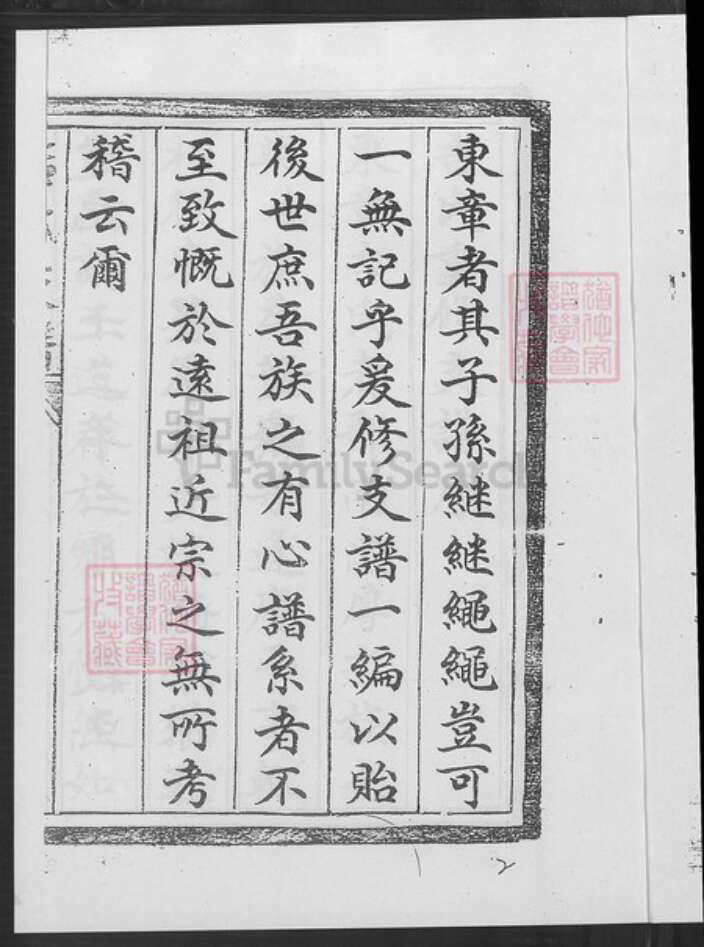 東章者其子孫継継繩繩豈可
一無記乎爰修支譜一編以貽
後世庶吾族之有心譜系者不
至致慨於遠祖近宗之無所考
稽云爾
FamilySearch
2